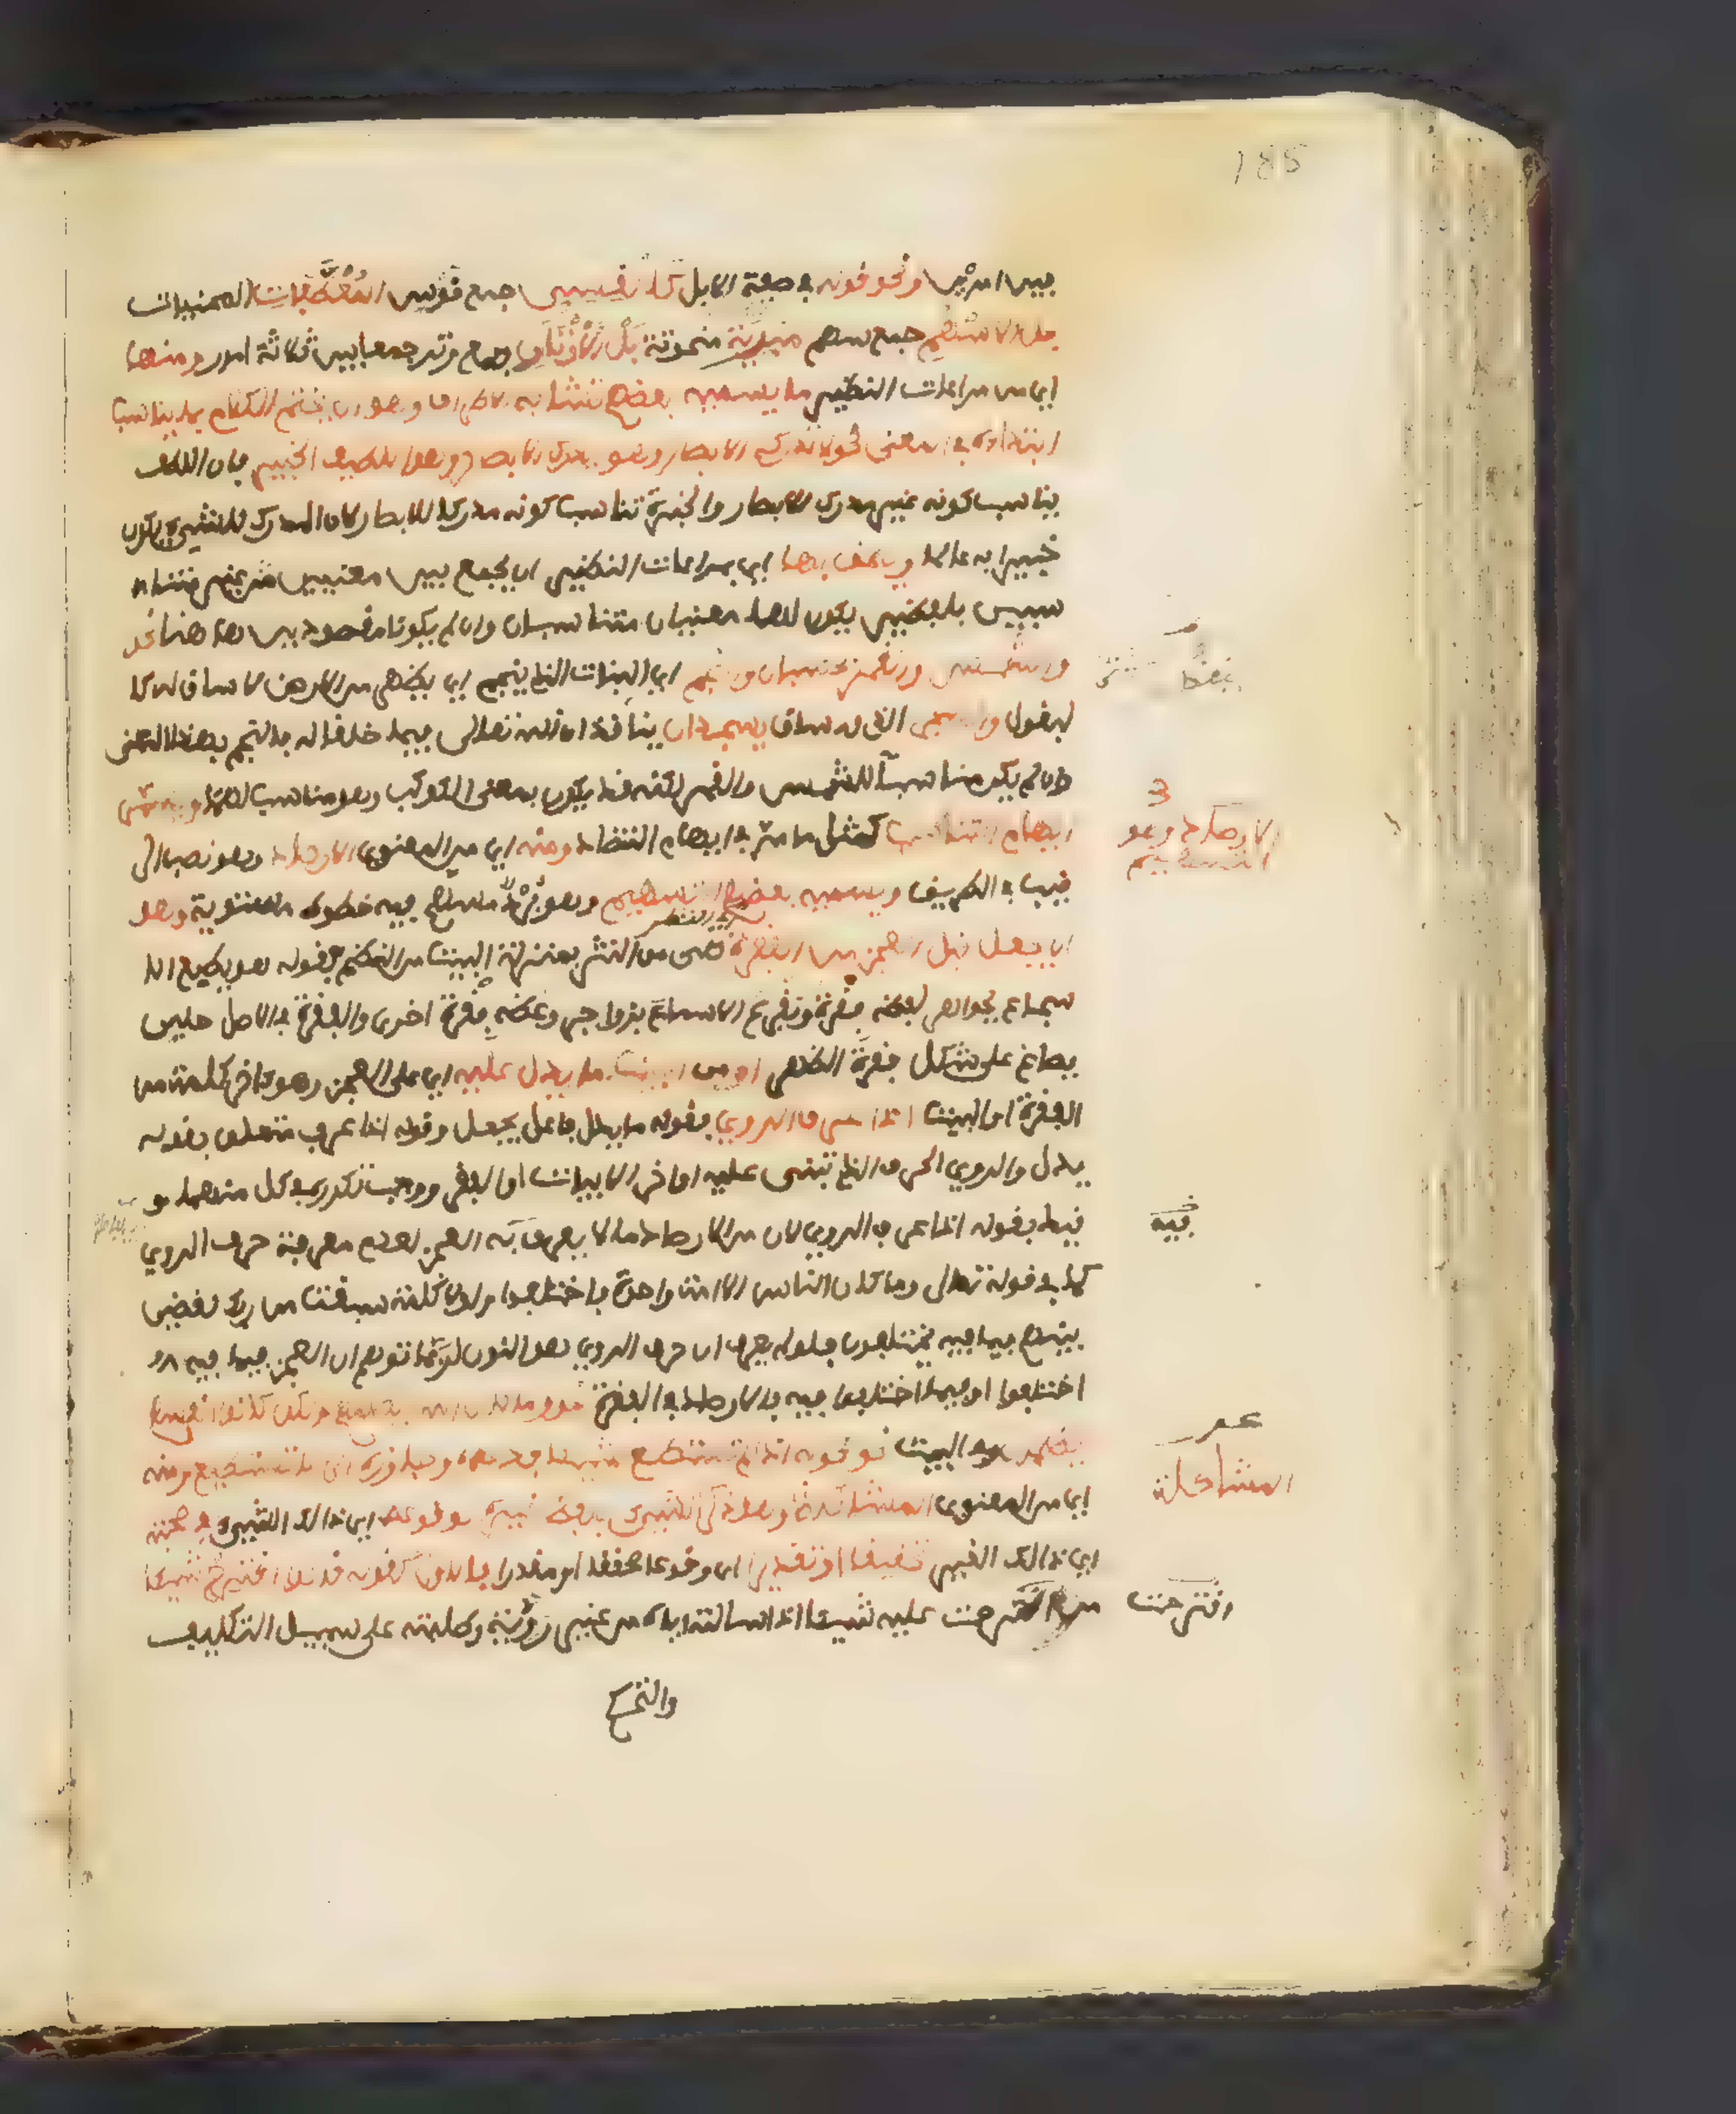 185
بين امرين ونحو قوله في صفة الابل كالقسي جمع قوس المعطفات المحنيات
بل الاسهم جمع سهم مبرية منحوتة بل الاوتار جمع وتر جمع بين ثلاثة امور ومنها
اي من مراعات النظير ما يسميه بعضهم تشابه الاطراف وهو ان يختم الكلام بما يناسب
ابتداءه في المعنى نحو لا تدركه الابصار وهو يدرك الابصار وهو اللطيف الخبير فان اللطف
يناسب كونه غير مدرك للابصار والخبرة تناسب كونه مدركا للابصار لان المدرك للشيء يكون
خبيرا به عالما ويلحق بها اي بمراعات النظير ان يجمع بين معنيين غير متنا
سبين بلفظين يكون لهما معنيان متناسبان وان لم يكونا مقصودين هنا نحو
والشمس والقمر بحسبان والنجم اي النبات الذي ينجم اي يظهر من الارض لا ساق له كا
لبقول والشجر الذي له ساق يسجدان ينقادان لله تعالى فيما خلقا له فالنجم بهذا المعنى
وان لم يكن مناسبا للشمس والقمر لكنه قد يكون بمعنى الكوكب وهو مناسب لهما ويسمى
ايهام التناسب كمثل ما مر في ايهام التضاد ومنه اي من المعنوي الارصاد وهو نصب الر
الارصاد وهو
التسهيم
قيب في الطريق ويسميه بعضهم التسهيم وهو برد مسهم فيه خطوط مستوية وهو
ان يجعل قبل العجز من الفقرة هي من النثر بمنزلة البيت من النظم فقوله هو يطبع الا
سجاع بجواهر لفظه فقرة ويقرع الاسماع بزواجر وعظه فقرة اخرى والفقرة في الاصل حلي
يصاغ على شكل فقرة الظهر او من البيت ما يدل عليه اي على العجز وهو اخر كلمة من
الفقرة او البيت اذا عرف الروي فقوله ما يدل فاعل يجعل وقوله اذا عرف متعلق بقوله
يدل والروي الحرف الذي تبنى عليه اواخر الابيات او الفقر ووجب تكرره في كل منهما و
قيد بقوله اذا عرف الروي لان من الارصاد ما لا يعرف به العجز لعدم معرفة حرف الروي
فيه
كما في قوله تعالى وما كان الناس الا امة واحدة فاختلفوا ولولا كلمة سبقت من ربك لقضي
بينهم فيما فيه يختلفون فلو لم يعرف ان حرف الروي هو النون لربما توهم ان العجز فيما فيه
اختلفوا او فيما اختلفوا فيه فالارصاد في الفقرة نحو وما كان الله ليظلمهم ولكن كانوا انفسهم
يظلمون وفي البيت نحو قوله اذا لم تستطع شيئا فدعه وجاوزه الى ما تستطيع ومنه
المشاكلة
اي من المعنوي المشاكلة وهو ذكر الشيء بلفظ غيره لوقوعه اي ذالك الشيء في صحبته
اي ذالك الغير تحقيقا او تقديرا اي وقوعا محققا او مقدرا فالاول كقوله قالوا اقترح شيئا
اقترحت
من اقترحت عليه شيئا اذا سالته اياه من غير روية وطلبته على سبيل التكليف
والتحكم